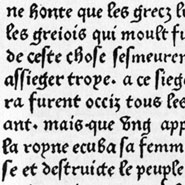 ne honte que les grecz l
les greiois qui moult fu
de ceste chose sesmeuren
assieger troye. a ce sieg
ra furent occiz tous les
ant. mais que vng app
la royne ecuba sa femm
se et destruicte le peuple